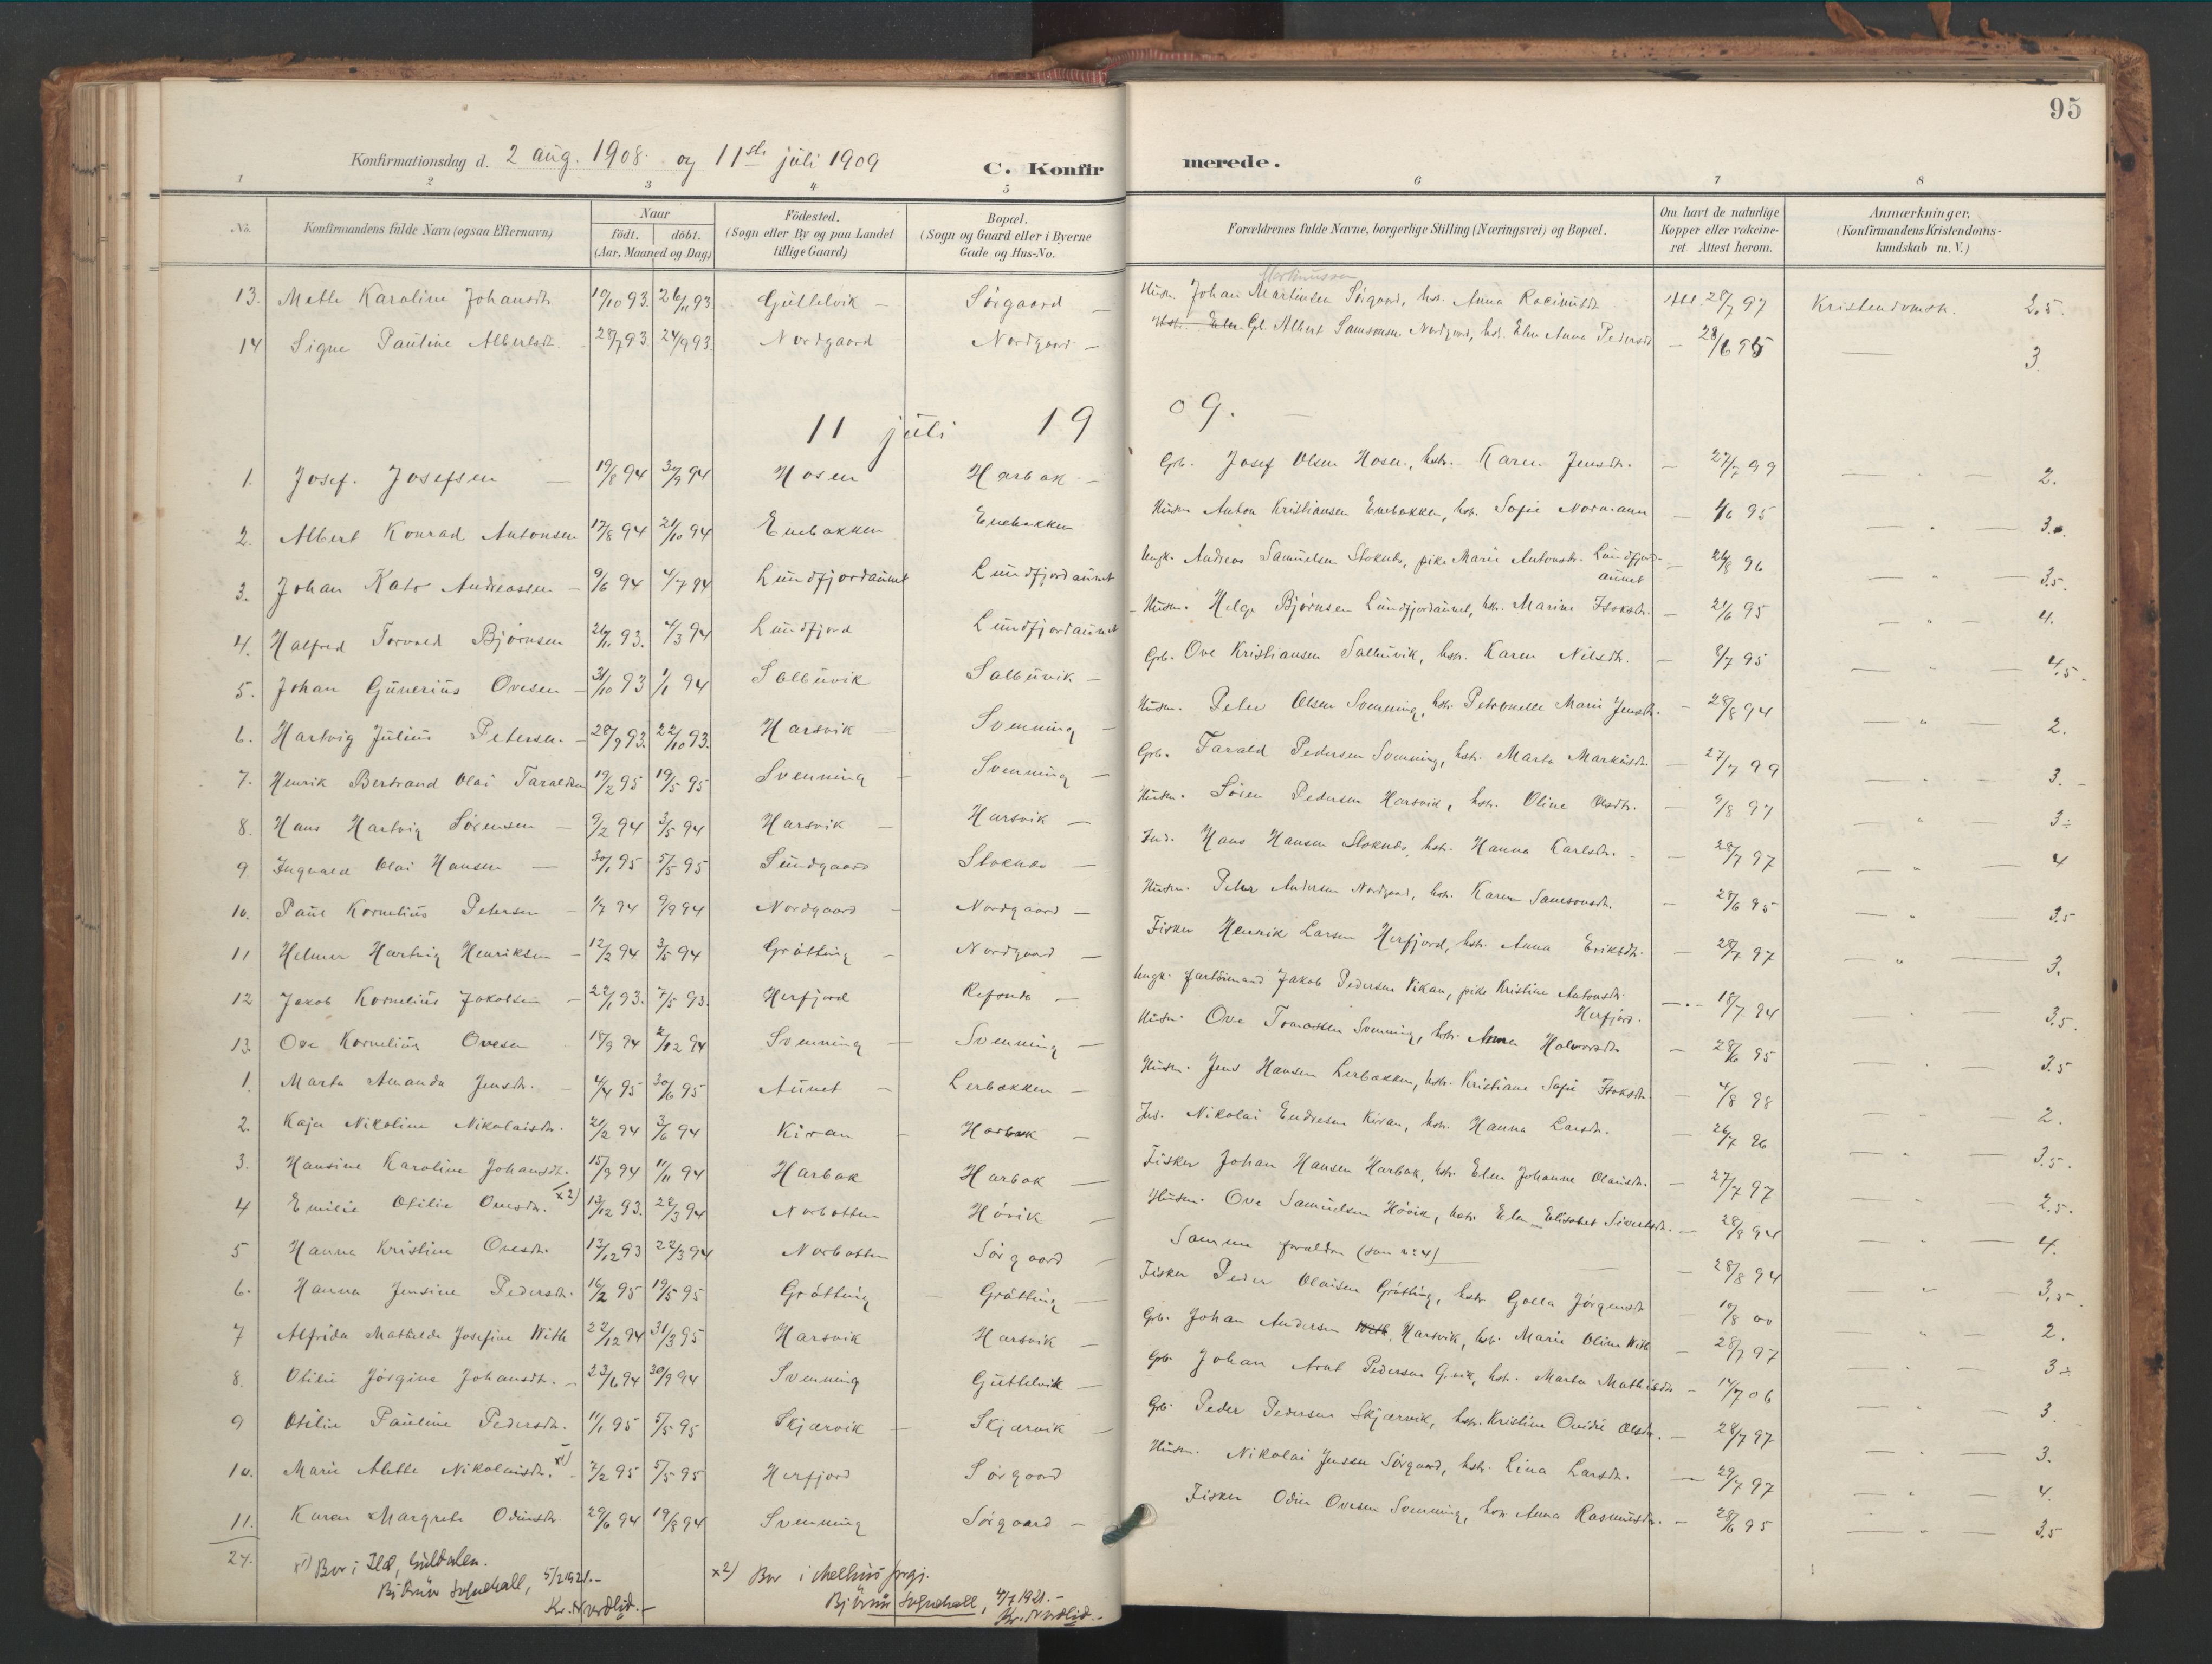 95
Konfirmationsdag d. 2 aug. 1908. og 11ste juli 1909 C. Konfirmerede.
1 2 3 4 5 6 7 8
No. Konfirmandens fulde Navn (ogsaa Efternavn) Naar født. döbt. (Aar, Maaned og Dag) Födested. (Sogn eller By og paa Landet tillige Gaard) Bopæl. (Sogn og Gaard eller i Byerne Gade og Hus-No. Forældrenes fulde Navne, borgerlige Stilling (Næringsvei) og Bopæl. Om havt de naturlige Kopper eller vakcineret Attest herom. Anmærkninger, (Konfirmandens Kristendomskundskab m. V.)
13. Mette Karoline Johansdt. 19/10 93. 26/11 93 Guttelvik – Sörgaard – Husm. Johan Martinsen Sörgaard, hst. Anna Att. 28/7 97 Kristendomsk. 2,5.
14 Signe Pauline Albertsdt. 28/7 93. 24/9 93. Nordgaard Nordgaard – Albert Samsonsen Nordgard, hst. Elen Anna Pedersdt – 28/6 95 — 3.
11 juli 1909. —
1. Josef Josefsen — 19/8 94 30/9 94 Hosen Harbak – Grb. Josef Olsen Hosen, hstr. Karen Jensdt. – 27/7 99 — " — 2.
2. Albert Konrad Antonsen 17/8 94 21/10 94 Enebakken Enebakken Husm. Anton Kristiansen Enebakken, hst. Sofie Normann – 95 — " — 3.
3. Johan Kato Andreassen – 9/6 94 4/7 94 Lundfjordaunet Lundfjordaunet Ungk. Andreas Samuelsen Stoknes, pike Marie Antonsdt. Lundfjordaunet – 26/8 96 — " — 3.5.
4. Halfred Torvald Björnsen 26/11 93. 4/3 94 Lundfjord Lundfjordaunet – Husm. Helge Björnsen Lundfjordaunet, hst. Marine Isaksdt. – 21/6 95 — " — 4.
5. Johan Gunerius Ovesen – 31/10 93 1/1 94 Salbuvik Salbuvik – Grb. Ove Kristiansen Salbuvik, hst. Karen Nilsdt. – 95 — " — 4,5-
6. Hartvig Julius Petersen. – 28/9 93. 22/10 93. Harsvik – Svenning – Husm. Peter Olsen Svenning, hst. Petronelle Marie Jensdt. – 28/8 94 — " — 2.
7. Henrik Bertrand Olai Taraldsen 19/2 95 19/5 95 Svenning – Svenning – Grb. Tarald Pedersen Svenning, hst. Marta Markusdt. – 27/7 99 — — 3. –
8. Hans Hartvig Sörensen – 9/2 94 3/5 94 Harsvik – Harsvik – Husm. Sören Pedersen Harsvik, hst. Oline Olsdt. – 9/8 97 — " — 3÷
9 Ingvald Olai Hansen — 30/1 95 5/5 95 Sundgaard Stoknes – Ind. Hans Hansen Stoknes, hst. Hanna Karlsdt. – 28/7 97 — " — 4
10. Paul Kornelius Petersen – 1/7 94 9/9 94 Nordgaard – Nordgaard – Husm. Peter Andersen Nordgaard, hst. Karen Samsonsdt. – 28/6 95 — " — 3.5
11 Helmer Hartvig Henriksen – 12/2 94 3/5 94 Gråtting – Nordgaard – Fisker Henrik Larsen Herfjord, hst. Anna Eriksdt. – 28/7 97 — " — 3.
12 Jakob Kornelius Jakobsen – 22/1 93. 7/5 93. Herfjord Refsnes – Ungk. fartöimand Jakob Pedersen Vikan, pike Kristine Antonsdt. Herfjord. – 18/7 94 3,5.
13. Ove Kornelius Ovesen – 18/9 94 2/12 94 Svenning – Svenning – Husm. Ove Tomassen Svenning, hst. Anna Halvorsdt. – 28/6 95 — — 3.5
1. Marta Amanda Jensdt. – 4/4 95 30/6 95 Aunet – Lerbakken – Husm. Jens Hansen Lerbakken, hst. Kristiane Sofie Isaksdt. – 4/8 98 — — 2.
2. Kaja Nikoline Nikolaisdt. 21/2 94 3/6 94 Kiran – Harbak – Ind. Nikolai Endresen Kiran, hst. Hanna Larsdt. – 26/7 96 — " — 3.5.
3. Hansine Karoline Johansdt. 15/9 94 11/11 94 Harbak Harbak – Fisker Johan Hansen Harbak, hst. Elen Johanne Olaisdt. – 27/7 97 — " — 2.5.
4 Emilie Otilie Ovesdt. x2) 13/12 93. 22/3 94 Norbotten Hövik – Husm. Ove Samuelsen Hövik, hst. Elen Elisabet Sivertsdt. – 28/8 94 — " — 4.
5 Hanna Kristine Ovesdt. 13/12 93 22/3 94 Norbotten Sörgaard – Samme foreldre (som no 4) — – 28/8 94 " — 3,5.
6. Hanna Jensine Pedersdt. 16/2 95 19/5 95 Gråtting – Gråtting – Fisker Peder Olaisen Gråtting, hst. Golla Jörgensdt – 10/8 00 " — 2.
7 Alfrida Mathilde Josefine With 22/12 94 31/3 95 Harsvik Harsvik – Grb. Johan Andersen Harsvik, hst. Marie Oline With – 28/7 97 — " — 3÷
8. Otilie Jörgine Johansdt. – 23/6 94 30/9 94 Svenning Guttelvik – Grb. Johan Arnt Pedersen G.vik, hst. Marta Mathisdt – 14/7 06 — " — 3
9 Otilie Pauline Pedersdt. 11/1 95 5/5 95 Skjærvik – Skjærvik – Grb. Peder Pedersen Skjærvik, hst. Kristine Ovidie Olsdt. – 28/7 97 — " — 3.
10. Marie Alette Nikolaisdt. x1) 7/2 95 5/5 95 Herfjord Sörgaard Husm. Nikolai Jensen Sörgaard, hst. Lina Larsdt. – 29/7 97 — " — 4.
11. Karen Margrete Odinsdt 29/6 94 19/8 94 Svenning Sörgaard – Fisker Odin Ovesen Svenning, hst. Anna Rasmusdt. – 28/6 95 — " — 3.5
24.
x1) Bor i Guldalen.
5/2 1921.–
Kr. Nordlid.–
x2) Bor i Melhus prgj.
4/7 1921.–
Kr. Nordlid.–